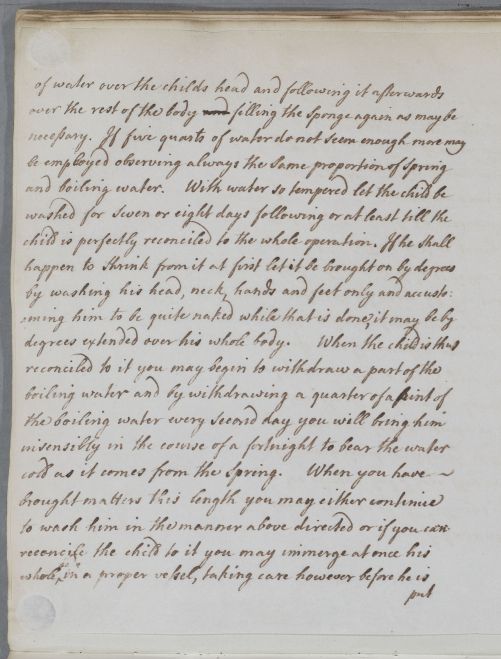 of water over the childs head and following it afterwards
over the rest of the body and filling the sponge again as may be
necessary. If five quarts of water do not seem enough more may
be employed observing always the same proportion of spring
and boiling water. With water so tempered let the child be
washed for seven or eight days following or at least till the
child is perfectly reconciled to the whole operation. If he shall
happen to shrink from it at first let it be brought on by degrees
by washing his head, neck, hands and feet only and accusto:
:ming him to be quite naked while that is done, it may be by
degrees extended over his whole body. When the child is thus
reconciled to it you may begin to withdraw a part of the
boiling water and by withdrawing a quarter of a pint of
the boiling water every second day you will bring him
insensibly in the course of a fortnight to bear the water
cold as it comes from the spring. When you have ~
brought matters this length you may either continue
to wash him in the manner above directed or if you can
reconcile the child to it you may immerge at once his
whole, in a proper vessel, taking care however before he is
put